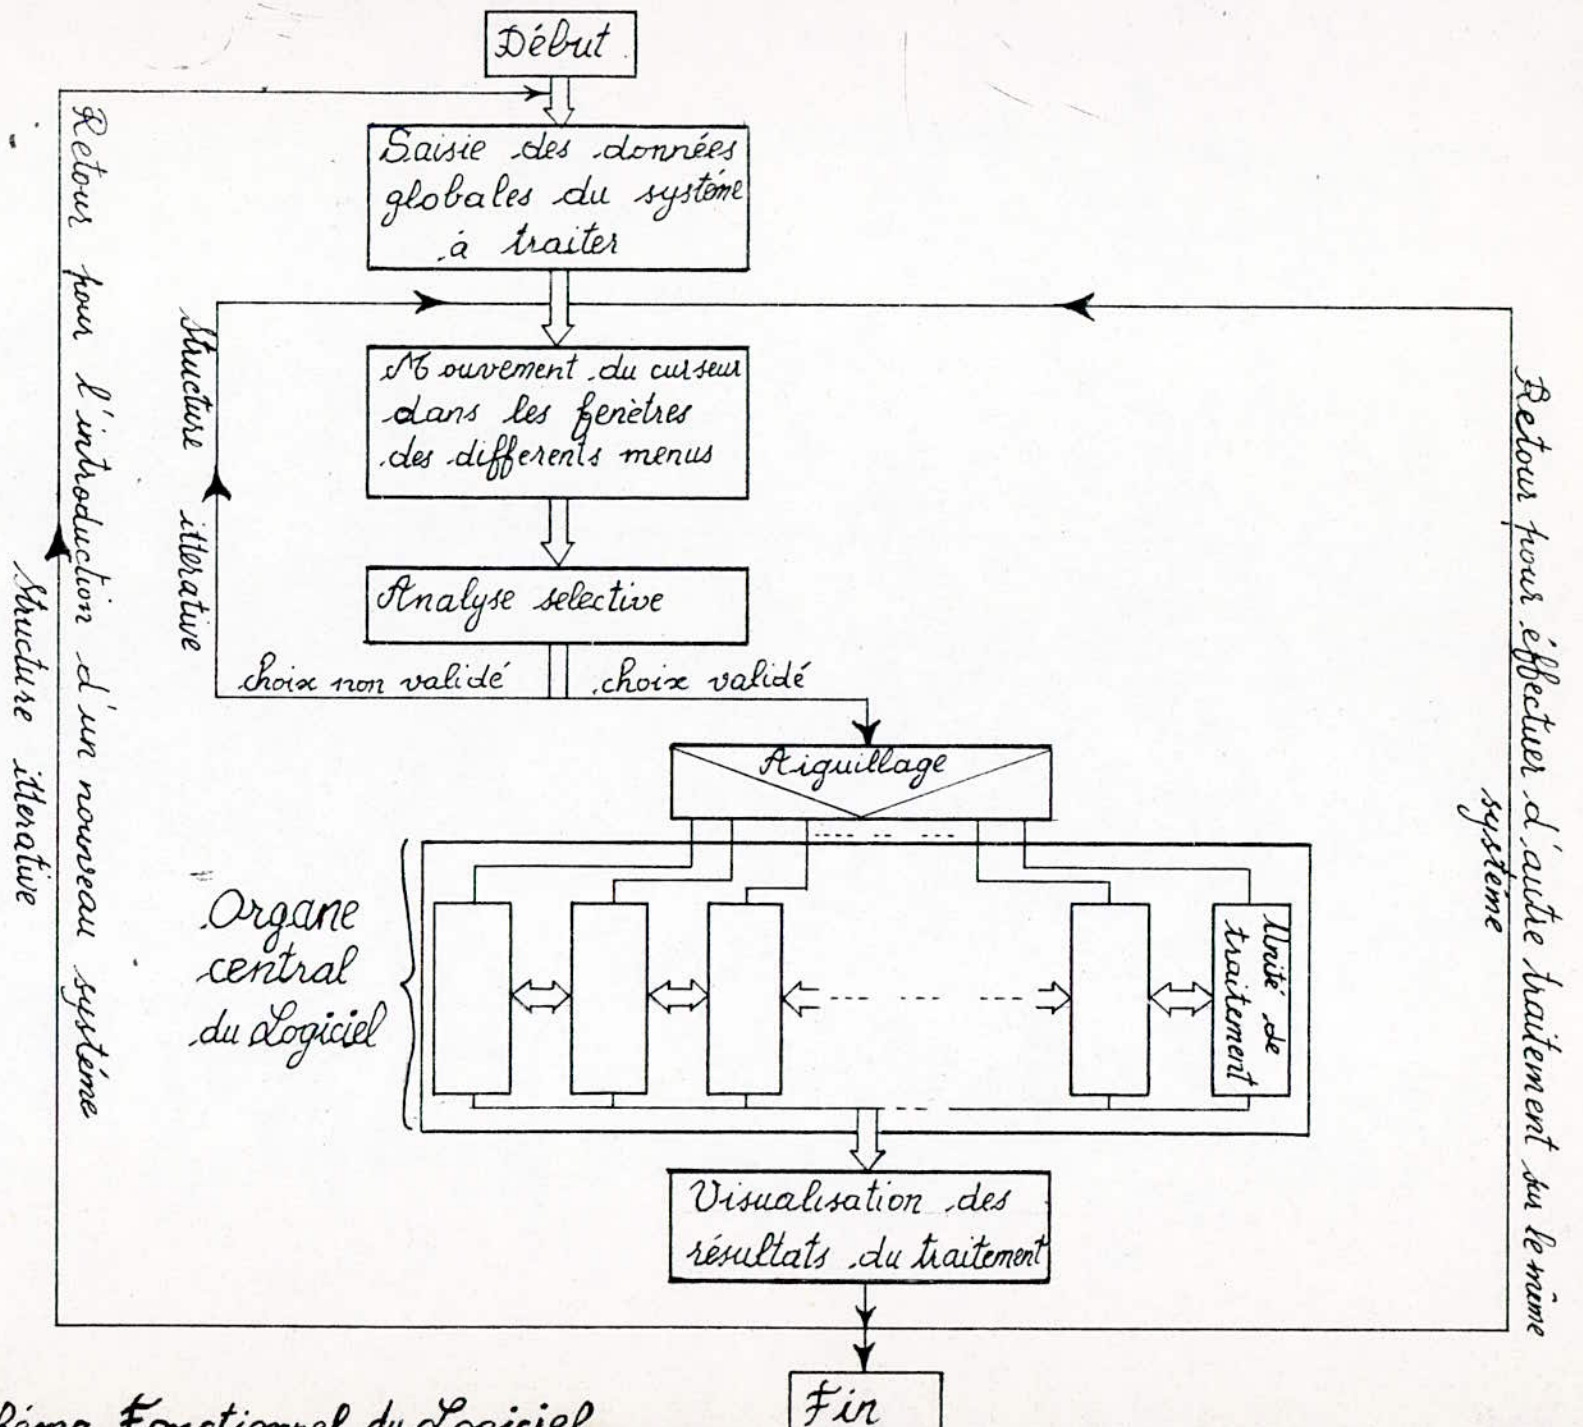 Début
Saisie des données
globales du systéme
à traiter
Mouvement du curseur
dans les fenètres
des differents menus
Analyse selective
choix non validé
choix validé
Aiguillage
Organe
central
du Logiciel
Unité de
traitement
Visualisation des
résultats du traitement
Fin
Retour pour l'introduction d'un nouveau systéme
Structure itterative
Structure itterative
Retour pour éffectuer d'autre traitement sur le même
systéme
Fonctionnel du Logiciel